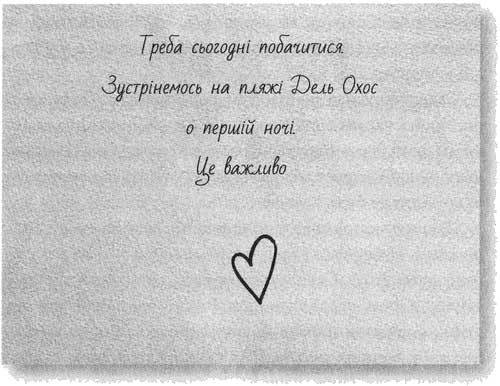 Треба сьогодні побачитися.
Зустрінемось на пляжі Дель Охос
о першій ночі.
Це важливо